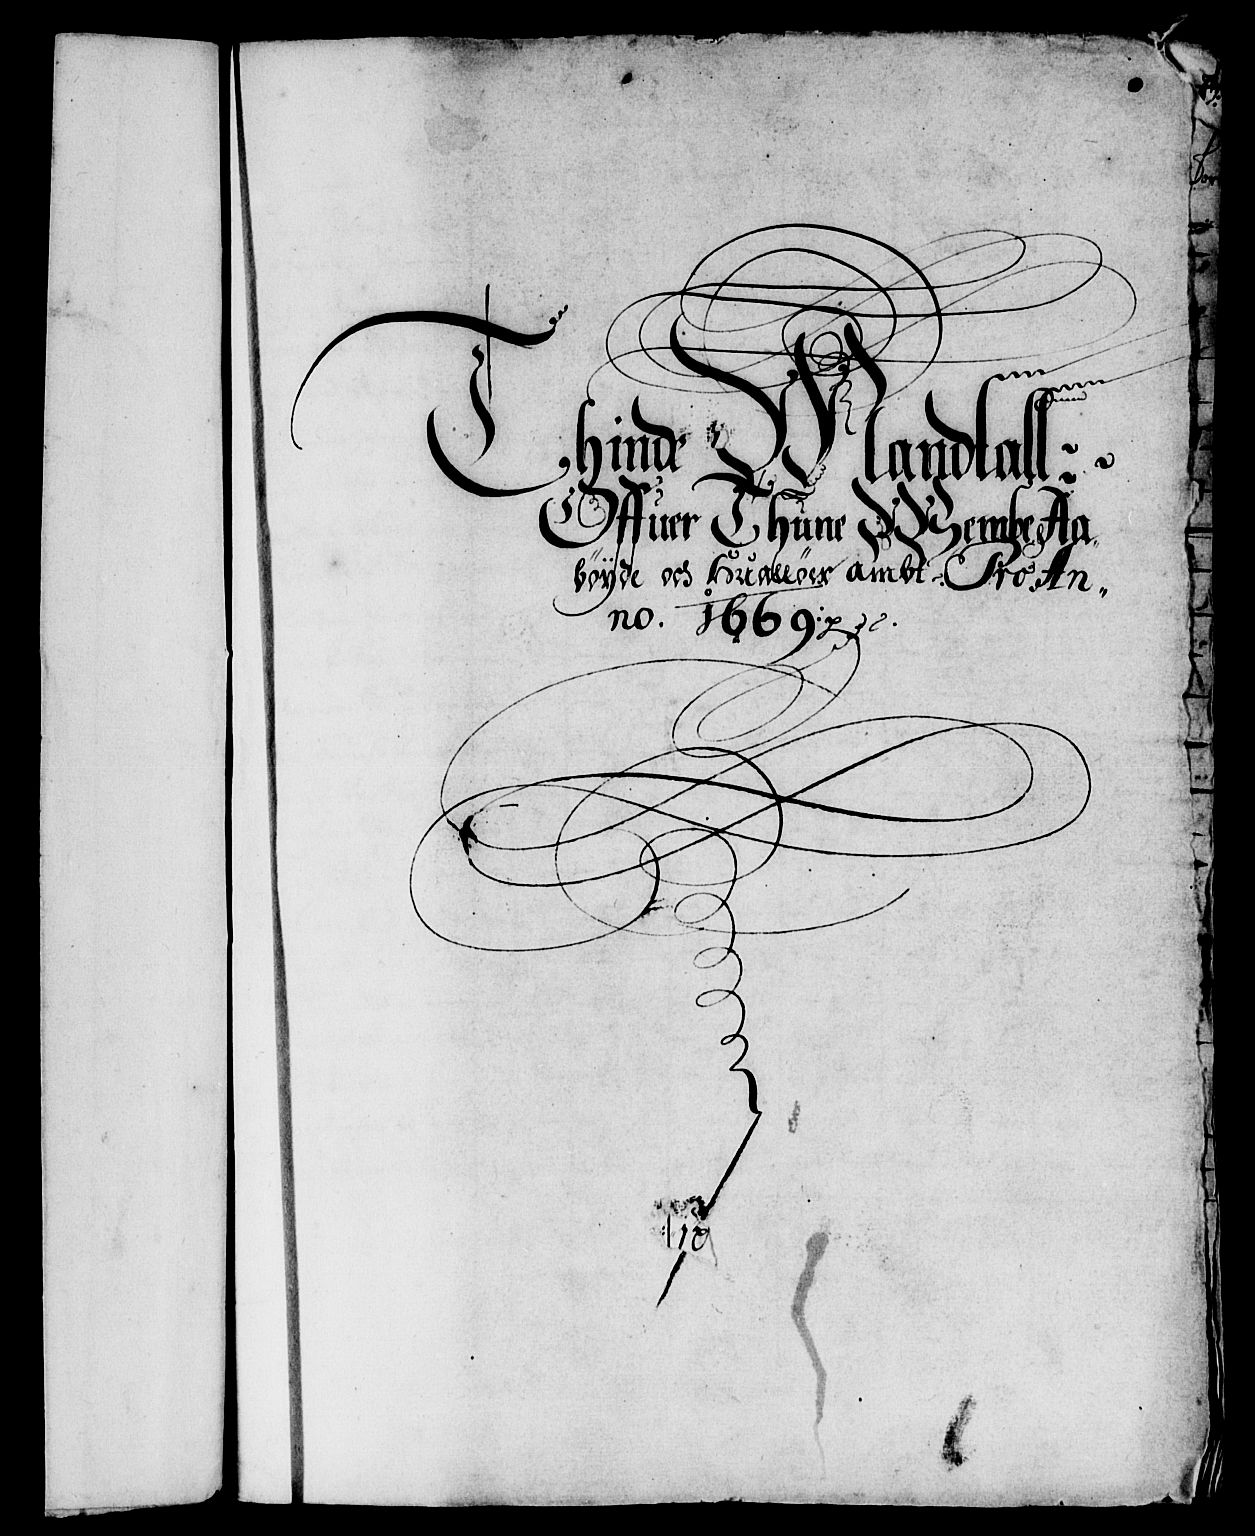 Thinde Mandtall
Offuer Thune Wembe Aa„
böyde och Hualöer Ambt Pro An„
no. 1669: